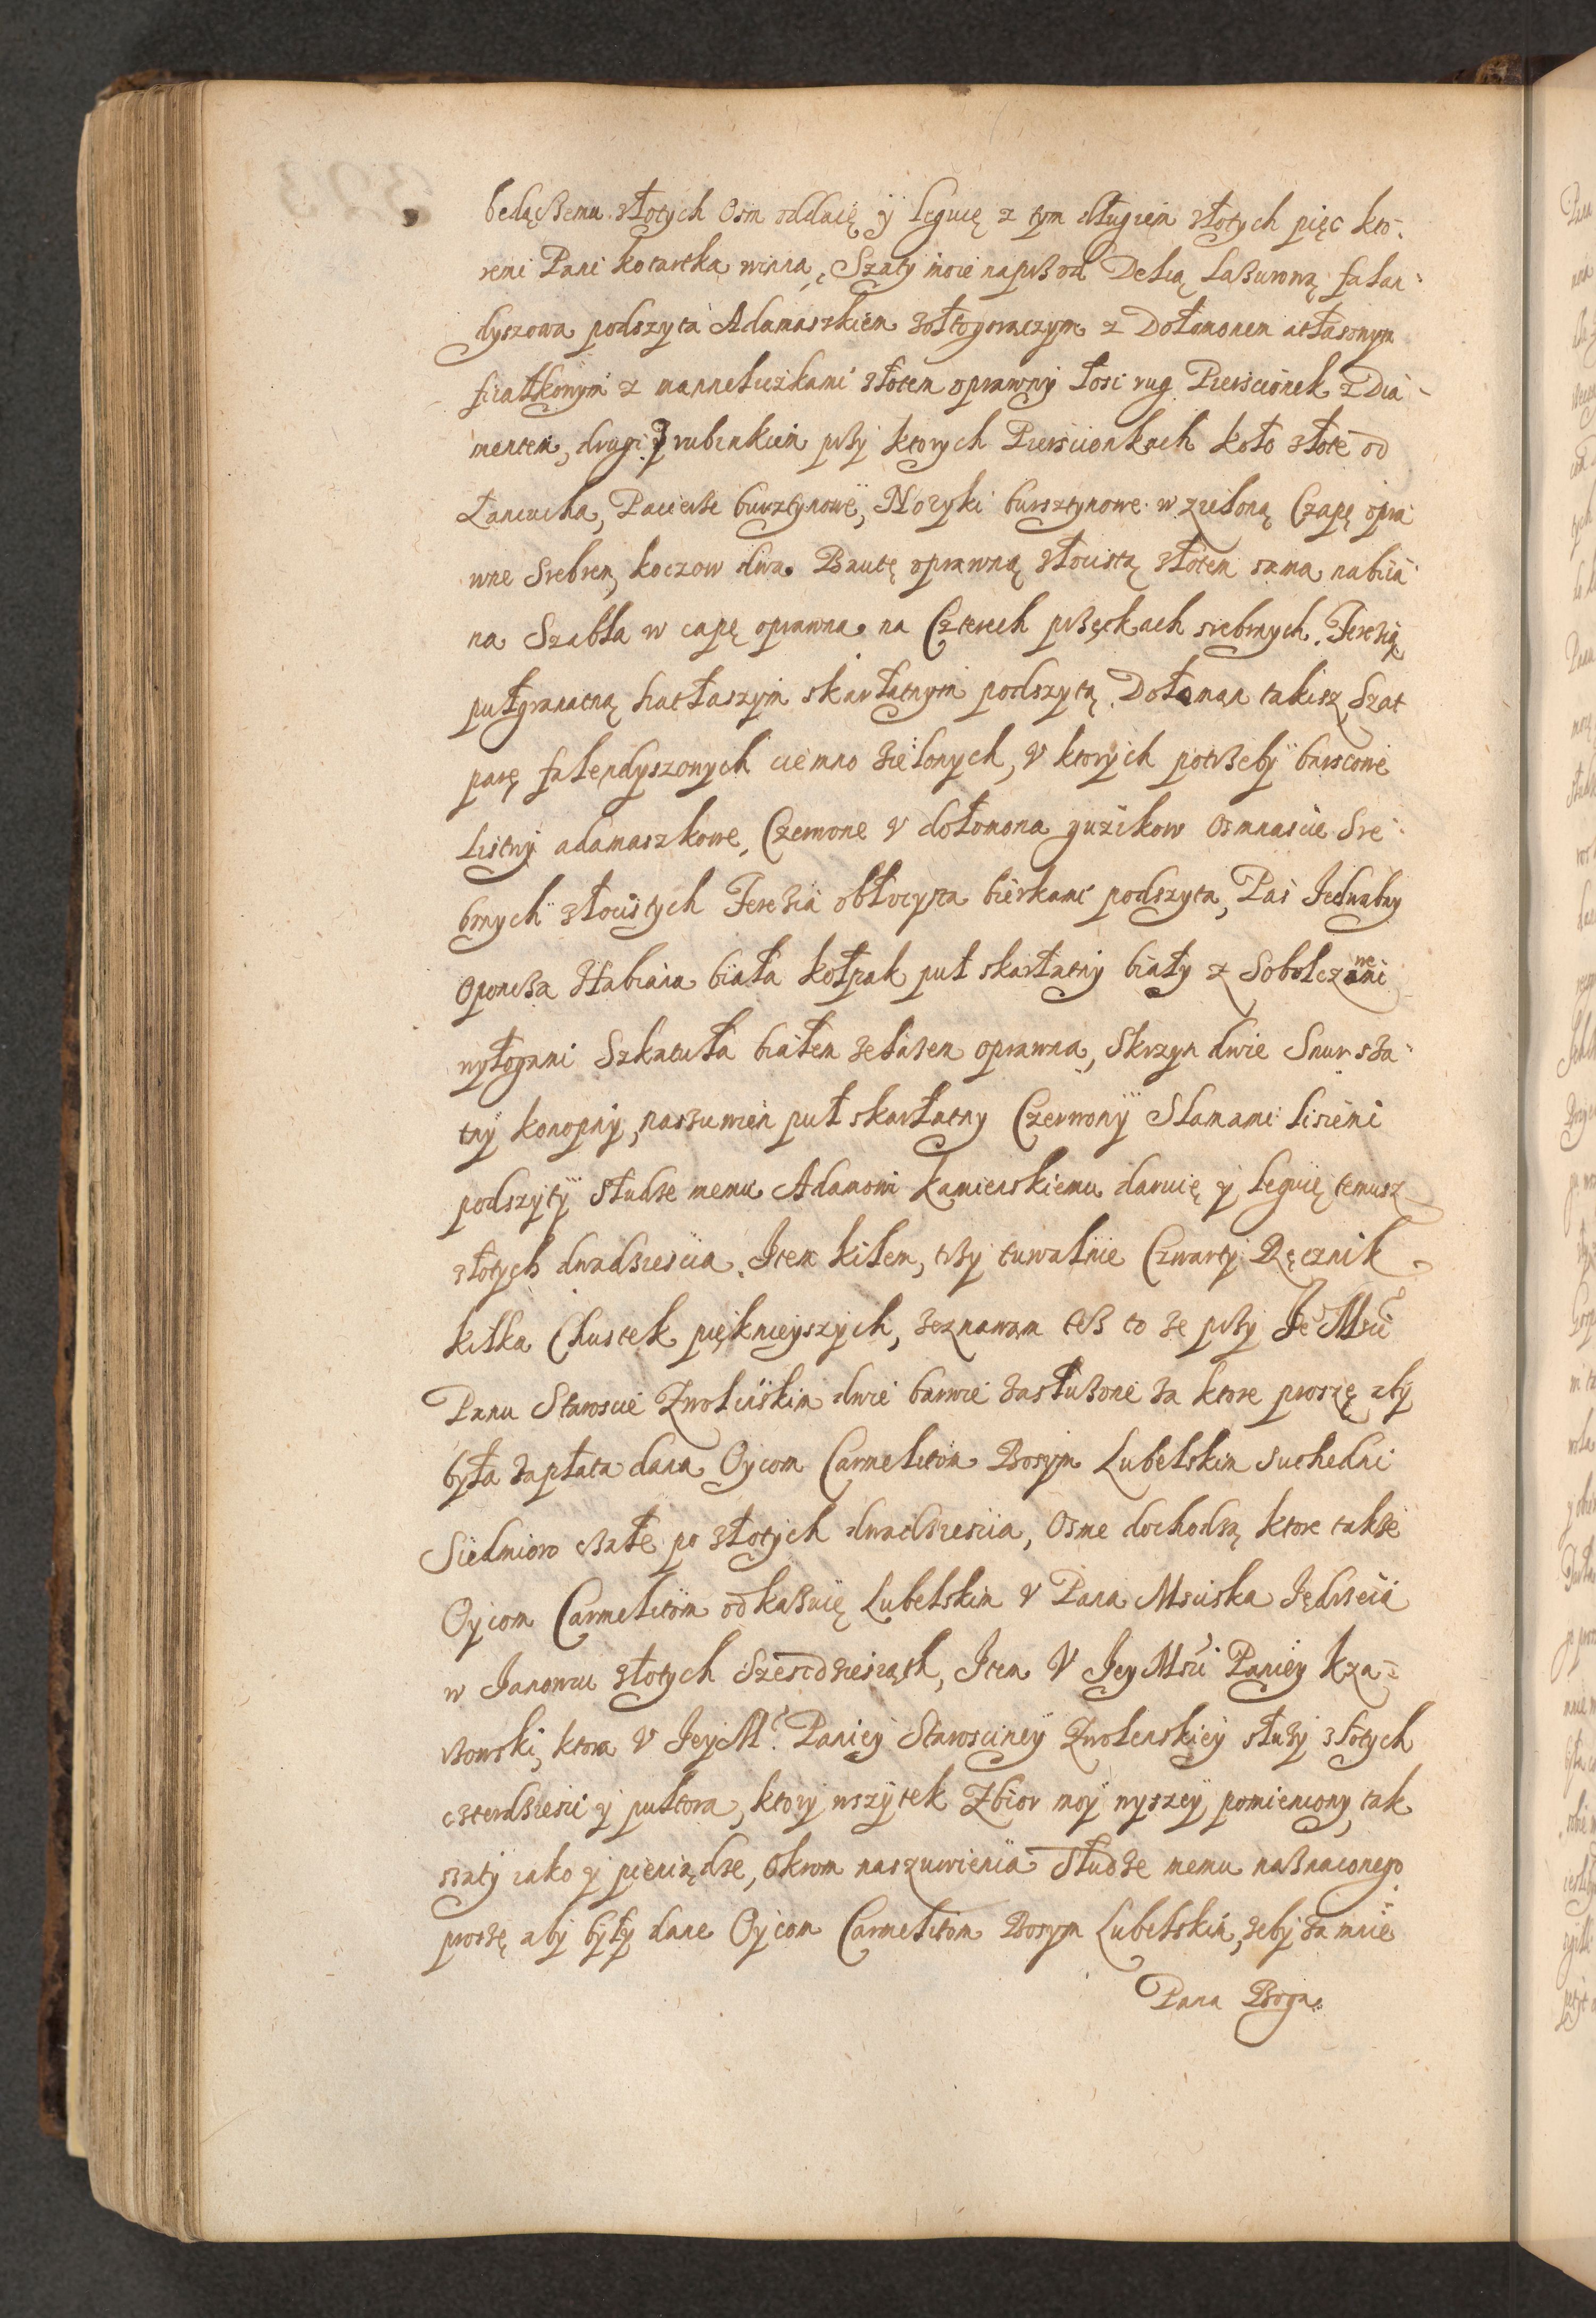 bedącßemu złotych Osm oddaię y leguię z tym długiem złotych pięc kto-
remi Pani kotarska winna, Szaty moie naprßod Delią laßurową falan-
dyszowa podszyta Adamaszkiem zołtogorączym z Dołomonem atłasowym
fiałkowym z manneluszkami złotem oprawny łosi rug Pierscionek z Dia-
mentem, drugi z rubinkiem prßy ktorych Pierscionkach koło złote od
Łancucha, Pacierße bursztynowe, Nozyki bursztynowe w zieloną Czapę opra
wne Srebrem, koczow dwa. Bantę oprawną złocistą złotem sama nabiia-
na Szabla w capę oprawna na Czterech prßęckach srebrnych. Ferezią
pułgranatną hatłaszym skarłatnym podszytą. Dołoman takisz, Szat
parę falendyszonych ciemno zielonych, v ktorych potrßeby barscowe
listwy adamaszkowe, Czerwone v dołomona guzikow osmnascie Sre-
brnych złocistych Ferezia obłoczysta bierkami podszyta, Pas Jedwabny
Oponcßa Habiana biała kołpak puł skarłatny biały z Sobolczemi
wyłogami Szkatuła białem zelazem oprawna, Skrzyn dwie Snur sza-
tny konopny, naszuwien puł skarłatny Czerwony Slamami lisiemi
podszyty słudze memu Adamowi kamienskiemu daruię y leguię temusz
złotych dwadziescia. Item kilem, trßy tuwalnie Czwarty Ręcznik
kilka Chustek pięknieyszych, zeznawam teß to ze prßy Je Msci
Panu Staroscie Zwolinskim dwie barwie zasłużone za ktore proszę aby
była zapłata dana Oycom Carmelitom Bosym Lubelskim suchedni
Siedmioro cßałe po złotych dwadziescia, Osme dochodzą ktore takze
Oycom Carmelitom odkaßuię Lubelskim v Pana Msciska Jędrzeia
w Janowcu złotych Szescdziesiąth, Item V Jey Msci Paniey kza-
ßowski, ktora V Jey Mci Paniey Starosciney Zwolenskiey służy złotych
czterdziesci y pułtora, ktory wszytek Zbior moy wyszey pomieniony, tak
szaty iako y pieniądze, Okrom naszuwienia Słudze memu naznaczonego
proszę aby były dane Oycom Carmelitom Bosym Lubelskim, zeby za mnie
Pana Boga